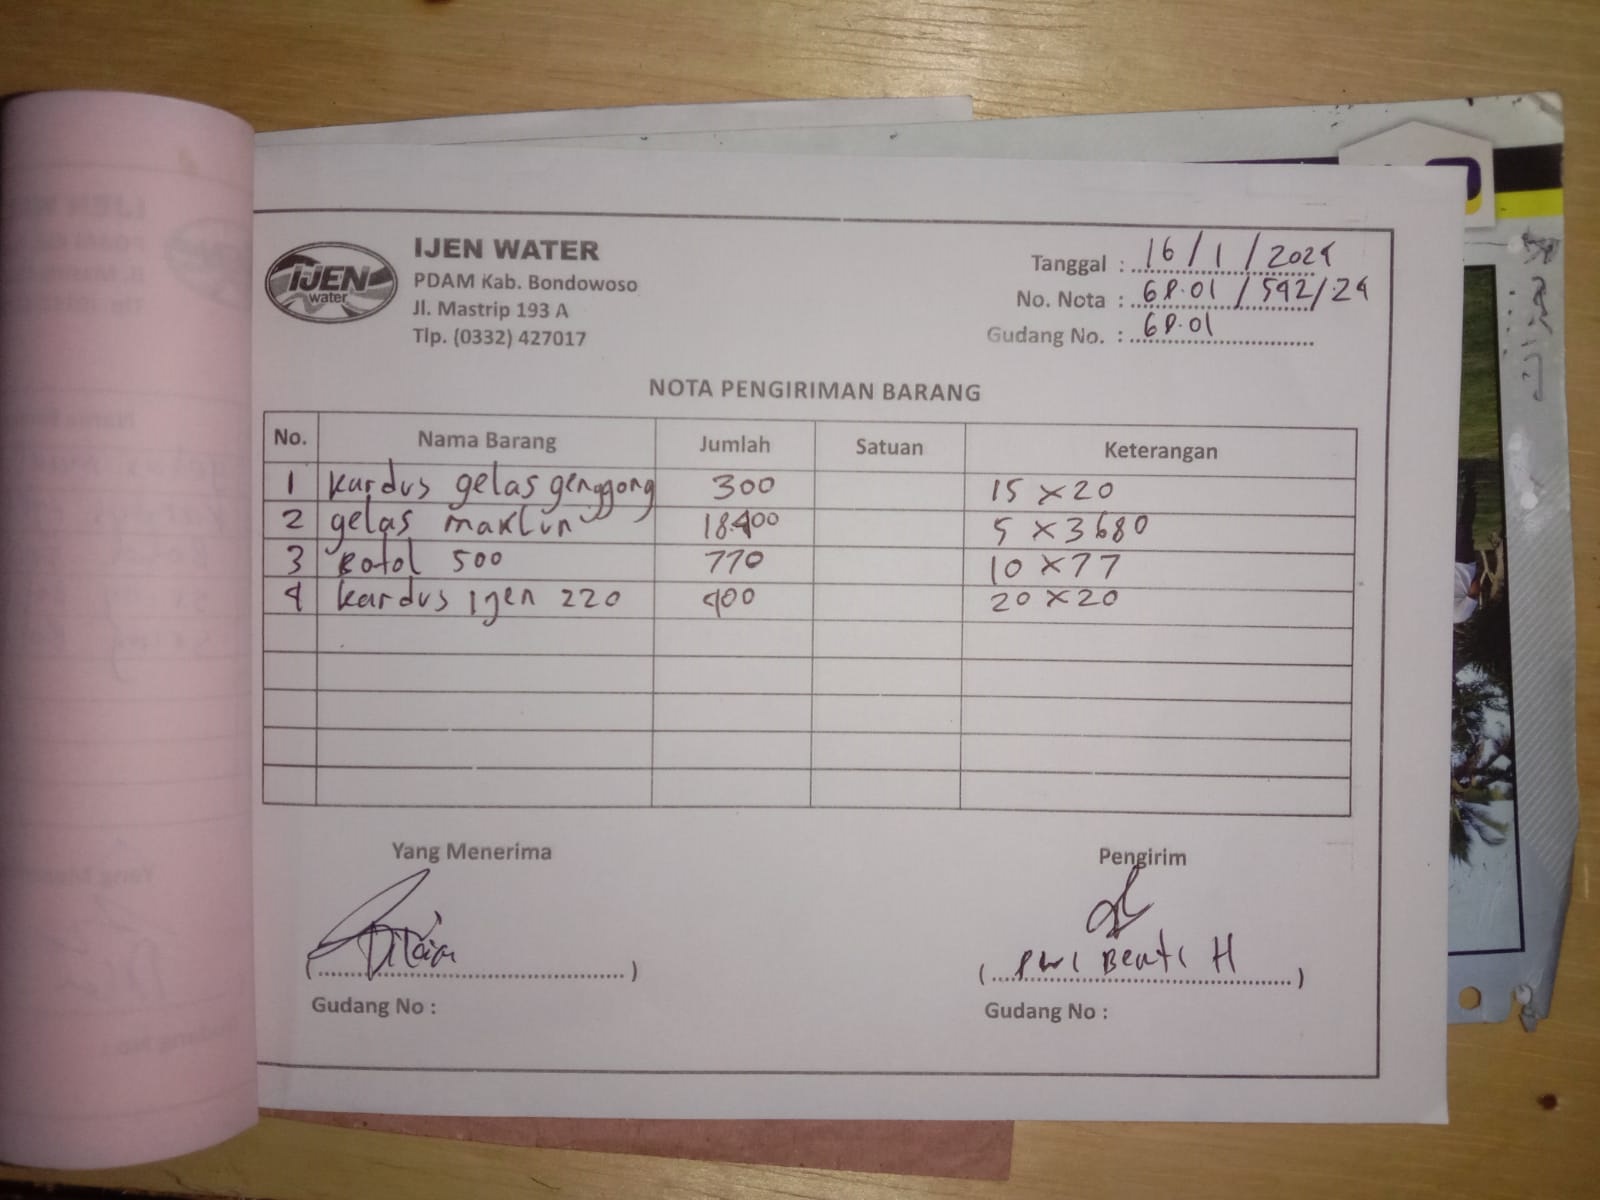 IJEN
water
IJEN WATER
PDAM Kab. Bondowoso
Jl. Mastrip 193 A
Tlp. (0332) 427017
Tanggal : 16 / 1 / 2024
No. Nota : 68.01 / 542 / 24
Gudang No. : 68.01
NOTA PENGIRIMAN BARANG
No. Nama Barang Jumlah Satuan Keterangan
1 kardus gelas genggong 300 15 x 20
2 gelas maklun 18.400 5 x 3680
3 Botol 500 770 10 x 77
4 kardus Ijen 220 400 20 x 20
Yang Menerima Pengirim
( ) ( Dwi H )
Gudang No : Gudang No :